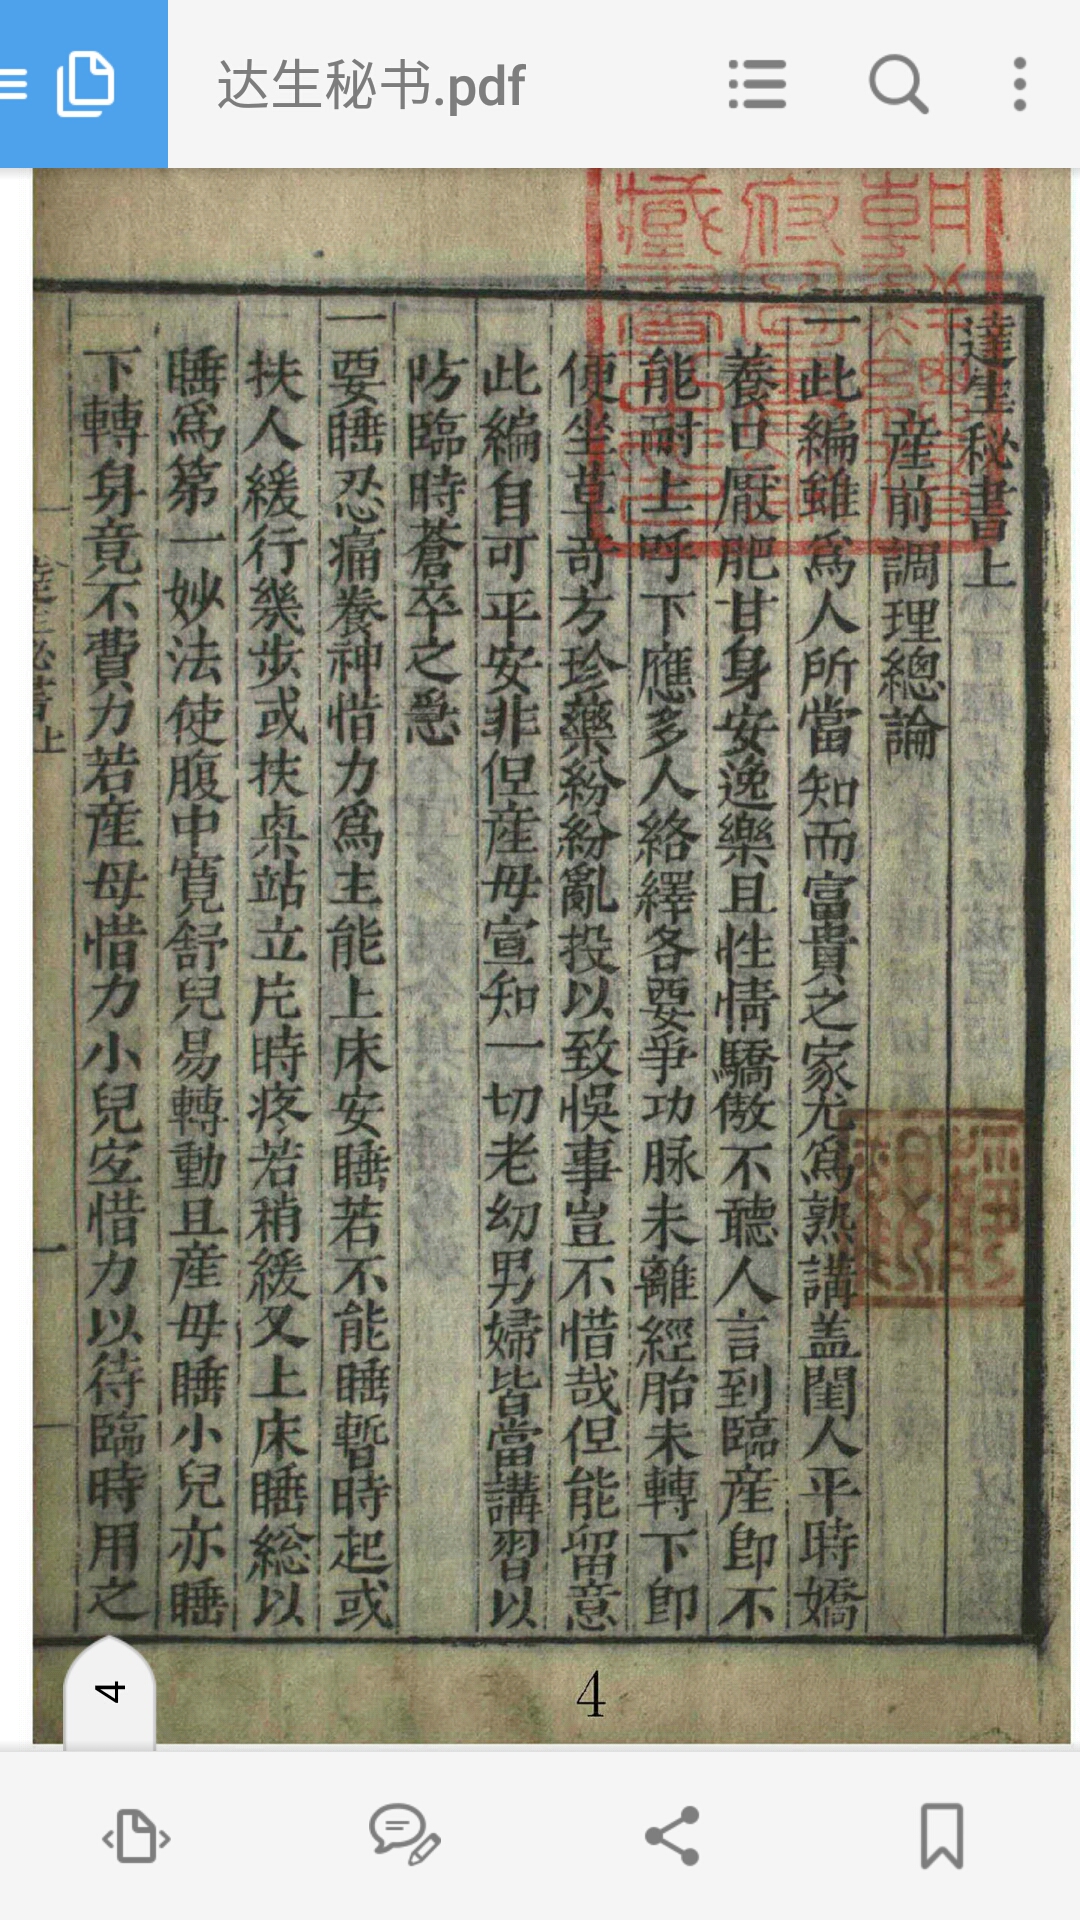 达生秘书.pdf
達生秘書上
産前調理總論
一此編雖爲人所當知而富貴之家尤爲熟講盖閨人平時嬌
養口厭肥甘身安逸樂且性情驕傲不聽人言到臨産卽不
能耐上呼下應多人絡繹各要爭功脉未離經胎未轉下卽
便坐草奇方珍藥紛紛亂投以致悞事豈不惜哉但能留意
此編自可平安非但産母宣知一切老幼男婦皆當講習以
防臨時蒼卒之急
一要睡忍痛養神惜力爲主能上床安睡若不能睡暫時起或
扶人緩行幾步或扶桌站立片時疼若稍緩又上床睡総以
睡爲第一妙法使腹中寬舒兒易轉動且産母睡小兒亦睡
下轉身竟不費力若産母惜力小兒宜惜力以待臨時用之
達生秘書上
一
4
4